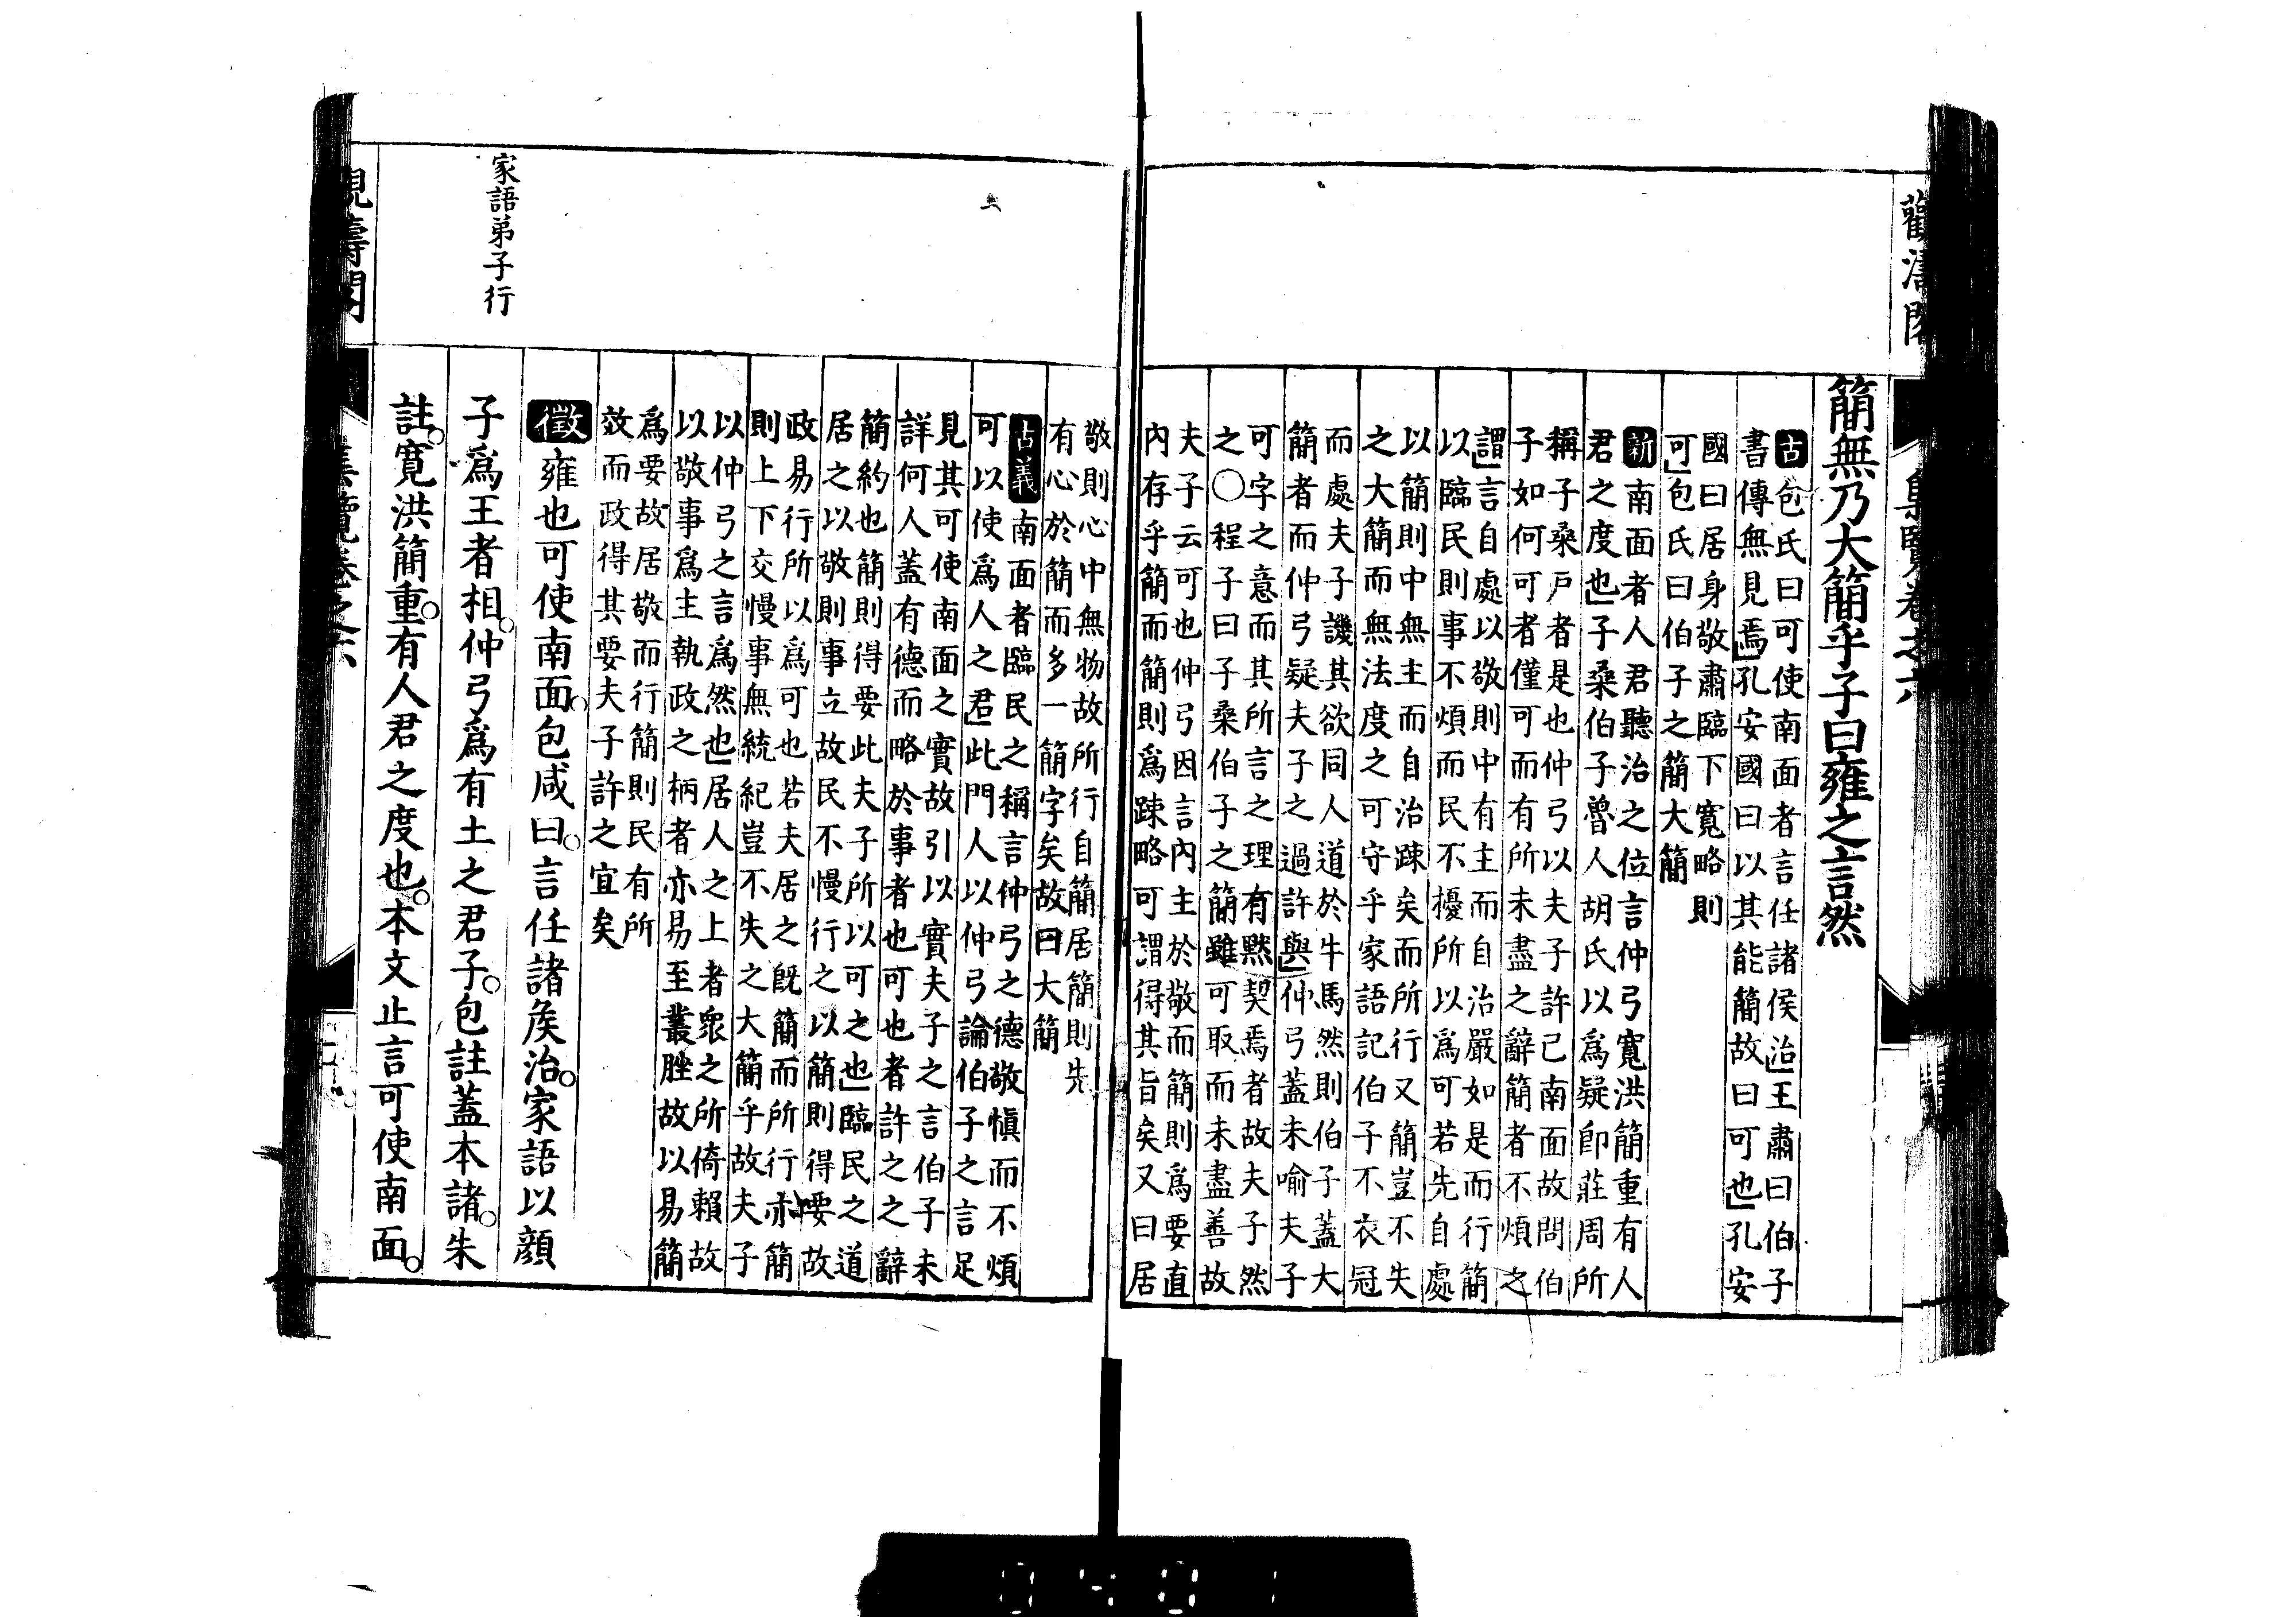 簡無乃大簡乎子曰雍之言然
古包氏曰可使南面者言任諸侯治王肅曰伯子
書傳無見焉孔安國曰以其能簡故曰可也孔安
國曰居身敬肅臨下寬略則
可包氏曰伯子之簡大簡
新南面者人君聽治之位言仲弓寬洪簡重有人
君之度也子桑伯子魯人胡氏以爲疑卽莊周所
稱子桑戶者是也仲弓以夫子許己南面故問伯
子如何可者僅可而有所未盡之辭簡者不煩之
謂言自處以敬則中有主而自治嚴如是而行簡
以臨民則事不煩而民不擾所以爲可若先自處
以簡則中無主而自治疎矣而所行又簡豈不失
之大簡而無法度之可守乎家語記伯子不衣冠
而處夫子譏其欲同人道於牛馬然則伯子蓋大
簡者而仲弓疑夫子之過許與仲弓蓋未喻夫子
可字之意而其所言之理有默契焉者故夫子然
之○程子曰子桑伯子之簡雖可取而未盡善故
夫子云可也仲弓因言內主於敬而簡則爲要直
內存乎簡而簡則爲疎略可謂得其旨矣又曰居
敬則心中無物故所行自簡居簡則先
有心於簡而多一簡字矣故曰大簡
古義南面者臨民之稱言仲弓之德敬愼而不煩
可以使爲人之君此門人以仲弓論伯子之言足
見其可使南面之實故引以實夫子之言伯子未
詳何人蓋有德而略於事者也可也者許之之辭
簡約也簡則得要此夫子所以可之也臨民之道
居之以敬則事立故民不慢行之以簡則得要故
政易行所以爲可也若夫居之旣簡而所行亦簡
則上下交慢事無統紀豈不失之大簡乎故夫子
以仲弓之言爲然也居人之上者衆之所倚賴故
以敬事爲主執政之柄者亦易至叢脞故以易簡
爲要故居敬而行簡則民有所
效而政得其要夫子許之宜矣
家語弟子行
徵雍也可使南面。包咸曰。言任諸矦治。家語以顔
子爲王者相。仲弓爲有土之君子。包註蓋本諸。朱
註。寬洪簡重。有人君之度也。本文止言可使南面。